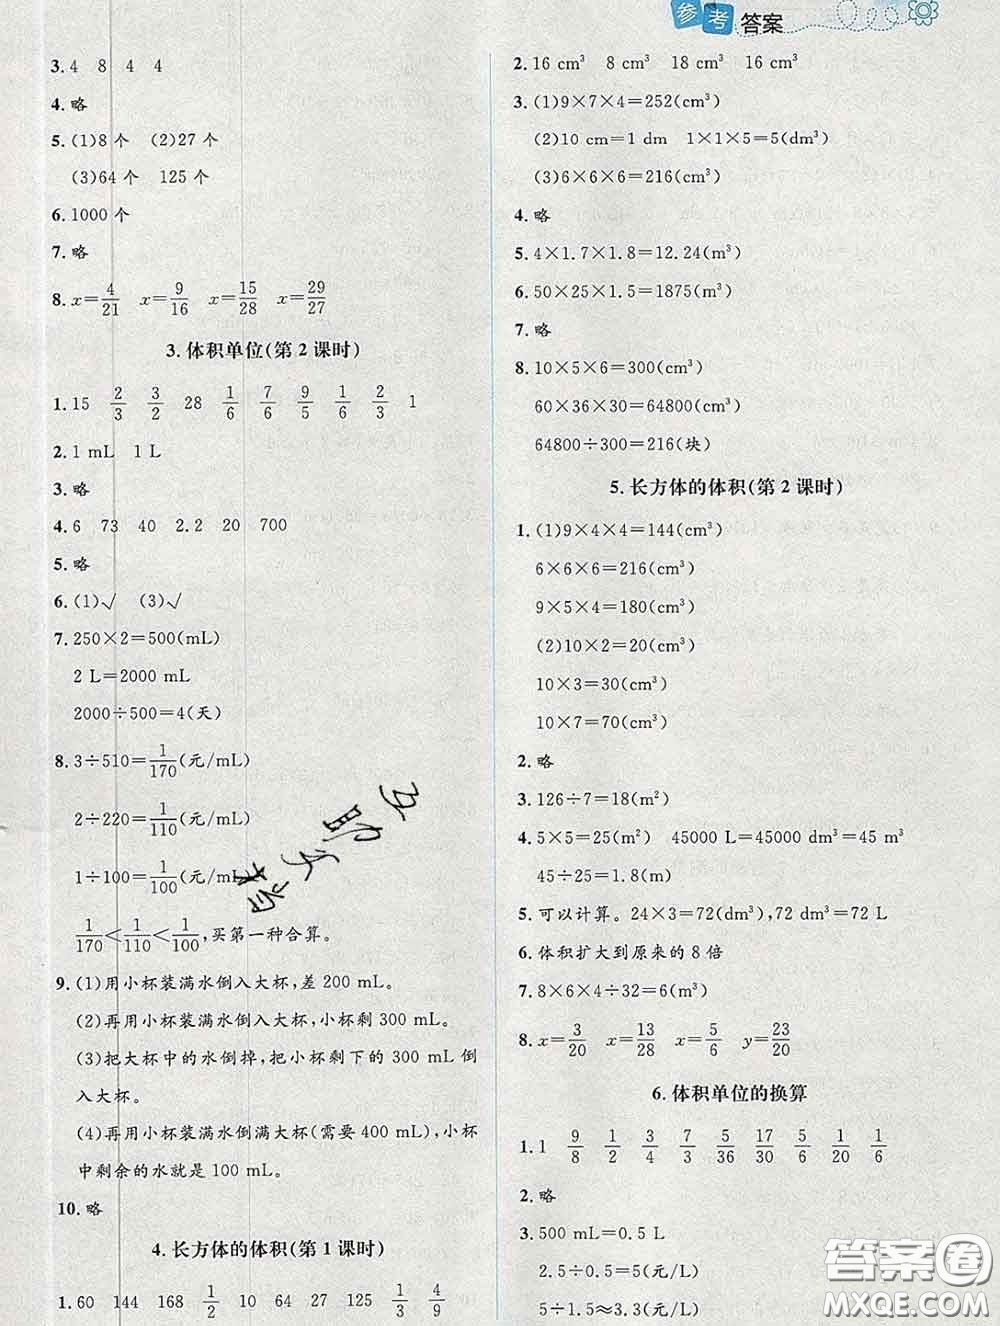 参考答案
3.4 8 4 4
4.略
5.(1)8个 (2)27个
(3)64个 125个
6.1000个
7.略
8.x=4/21 x=9/16 x=15/28 x=29/27
3.体积单位(第2课时)
1.15 2/3 3/2 28 1/6 7/6 9/5 1/6 2/3 1
2.1 mL 1 L
3.略
4.6 73 40 2.2 20 700
5.略
6.(1)√ (3)√
7.250×2=500(mL)
2 L=2000 mL
2000÷500=4(天)
8.3÷510=1/170(元/mL)
2÷220=1/110(元/mL)
1÷100=1/100(元/mL)
1/170<1/110<1/100,买第一种合算。
9.(1)用小杯装满水倒入大杯,差200 mL。
(2)再用小杯装满水倒入大杯,小杯剩300 mL。
(3)把大杯中的水倒掉,把小杯剩下的300 mL倒
入大杯。
(4)再用小杯装满水倒满大杯(需要400 mL),小杯
中剩余的水就是100 mL。
10.略
4.长方体的体积(第1课时)
1.60 144 168 1/2 10 64 27 125 1/3 4/9
2.16 cm³ 8 cm³ 18 cm³ 16 cm³
3.(1)9×7×4=252(cm³)
(2)10 cm=1 dm 1×1×5=5(dm³)
(3)6×6×6=216(cm³)
4.略
5.4×1.7×1.8=12.24(m³)
6.50×25×1.5=1875(m³)
7.略
8.10×5×6=300(cm³)
60×36×30=64800(cm³)
64800÷300=216(块)
5.长方体的体积(第2课时)
1.(1)9×4×4=144(cm³)
6×6×6=216(cm³)
9×5×4=180(cm³)
(2)10×2=20(cm³)
10×3=30(cm³)
10×7=70(cm³)
2.略
3.126÷7=18(m²)
4.5×5=25(m²) 45000 L=45000 dm³=45 m³
45÷25=1.8(m)
5.可以计算。24×3=72(dm³),72 dm³=72 L
6.体积扩大到原来的8倍
7.8×6×4÷32=6(cm)
8.x=3/20 x=13/28 x=5/6 y=23/20
6.体积单位的换算
1.1 9/8 1/2 3/4 7/3 5/36 17/30 5/2 1/20 1/6
2.略
3.500 mL=0.5 L
2.5÷0.5=5(元/L)
5÷1.5≈3.3(元/L)
答案圈
MXQE.COM